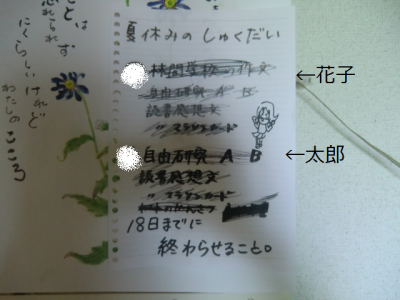 夏休みのしゅくだい
林間学校の作文
自由研究 A B
読書感想文
〃 スラシュカード
←花子
自由研究 A B
読書感想文
〃 スラシュカード
←太郎
18日までに
終わらせること。
ことは ず
忘れられ
にくらしい けれど
わたしの こころ